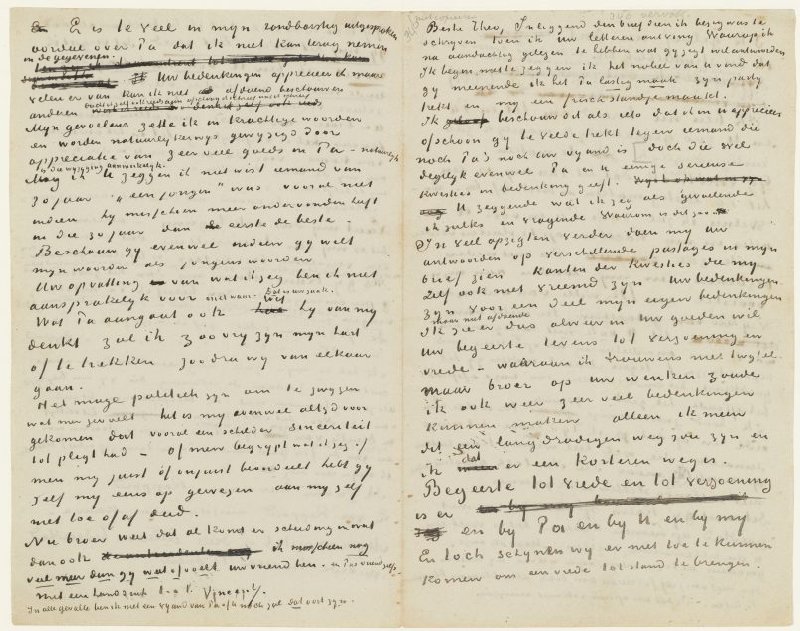 Er is te veel in myn rondborstig uitgesproken
oordeel over Pa dat ik niet kan terug nemen
in de gegevenen.
Uw bedenkingen apprecieer ik maar
velen er van kan ik niet als afdoend beschouwen
anderen
Myn gevoelens zette ik in krachtige woorden
en worden natuurlykerwys gewyzigd door
appreciatie van zeer veel goeds in Pa - natuurlyk
is die wyziging aanmerkelyk.
Mag ik U zeggen ik niet wist iemand van
30 jaar "een jongen" was vooral niet
indien hy misschien meer ondervonden heeft
in die 30 jaar dan de eerste de beste.
Beschouw gy evenwel indien gy wilt
myn woorden als jongenswoorden
Uw opvatting van wat ik zeg ben ik niet
aansprakelyk voor niet waar. Dat is uw zaak.
Wat Pa aangaat ook wat hy van my
denkt zal ik zoo vry zyn my 't hart
of te trekken zoodra wy van elkaar
gaan.
Het moge politiek zyn om te zwygen
wat men gevoelt het is my evenwel altyd voor
gekomen dat vooral een schilder sinceriteit
tot pligt had - of men begrypt wat ik zeg, of
men my juist of onjuist beoordeelt hebt gy
zelf my eens op gewezen aan my zelf
niet toe of af deed.
Nu broer weet dat al komt er scheiding in wat
dan ook ik misschien nog
veel meer dan gy wat of voelt uw vriend ben. en Pa's vriend zelfs.
met een handdruk t.à.t. Vincent.
In alle gevalle ben ik niet een vyand van Pa of U noch zal dat ooit zyn.
Beste Theo, Inliggend den brief dien ik bezig was te
schryven toen ik uw letteren ontving. Waarop ik
na aandachtig gelezen te hebben wat gy zegt wil antwoorden
Ik begin met te zeggen ik het nobel van u vind dat
gy meenende ik het Pa lastig maak zyn party
trekt en my een frisch standje maakt.
Ik beschouw dit als iets dat ik in u apprecieer
ofschoon gy te velde trekt tegen iemand die
noch Pa's noch uw vyand is doch die wel
degelyk evenwel Pa en u eenige serieuse
kwesties in bedenking geeft.
U zeggende wat ik zeg als gevoelende
ik zulks en vragende waarom is dit zoo
In veel opzigten verder doen my uw
antwoorden op verschillende passages in myn
brief zien kanten der kwesties die my
zelf ook niet vreemd zyn uw bedenkingen
zyn voor een deel myn eigen bedenkingen
maar niet afdoende
Ik zie er dus alweer in uw goeden wil
uw begeerte tevens tot verzoening en
vrede - waaraan ik trouwens niet twyfel.
maar broer op uw wenken zoude
ik ook weer zeer veel bedenkingen
kunnen maken alleen ik meen
dit een langdradigen weg zou zyn en
ik dat er een korteren weg is.
Begeerte tot vrede en tot verzoening
is er
en by Pa en by U en by my
En toch schynen wy er niet toe te kunnen
komen om een vrede tot stand te brengen.